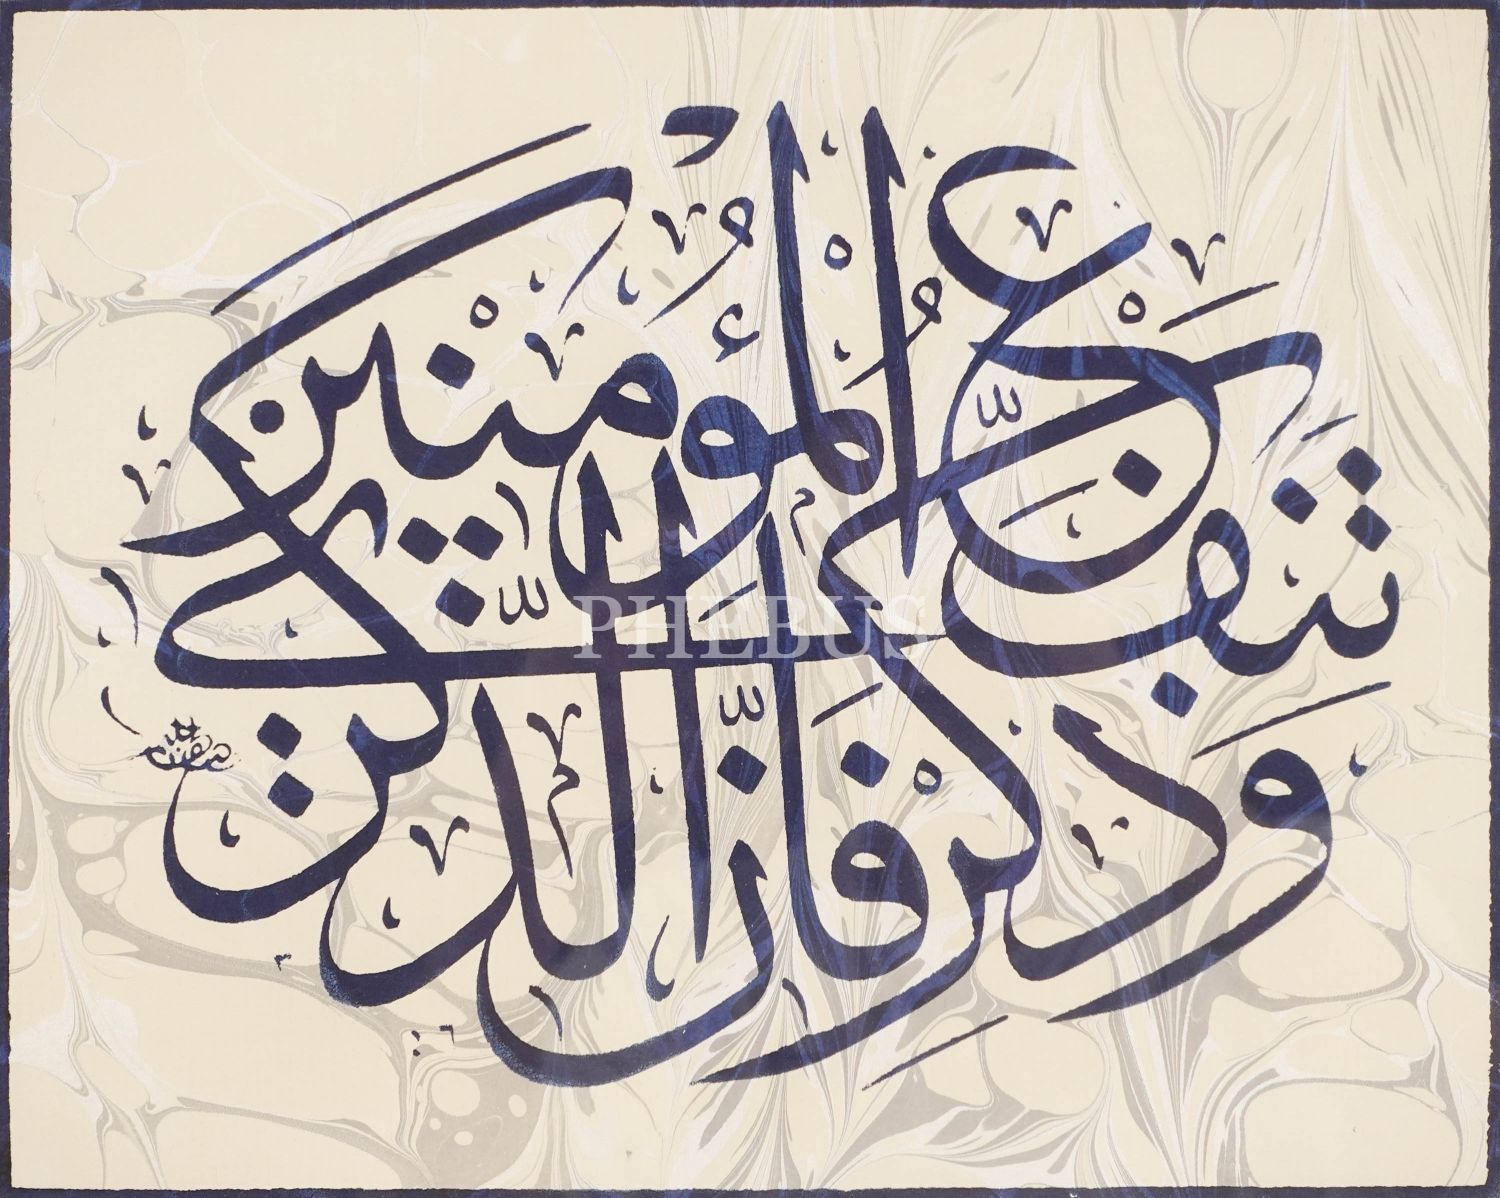 وَذَكِّرْ فَإِنَّ الذِّكْرَىٰ تَنْفَعُ الْمُؤْمِنِينَ
PHEBUS